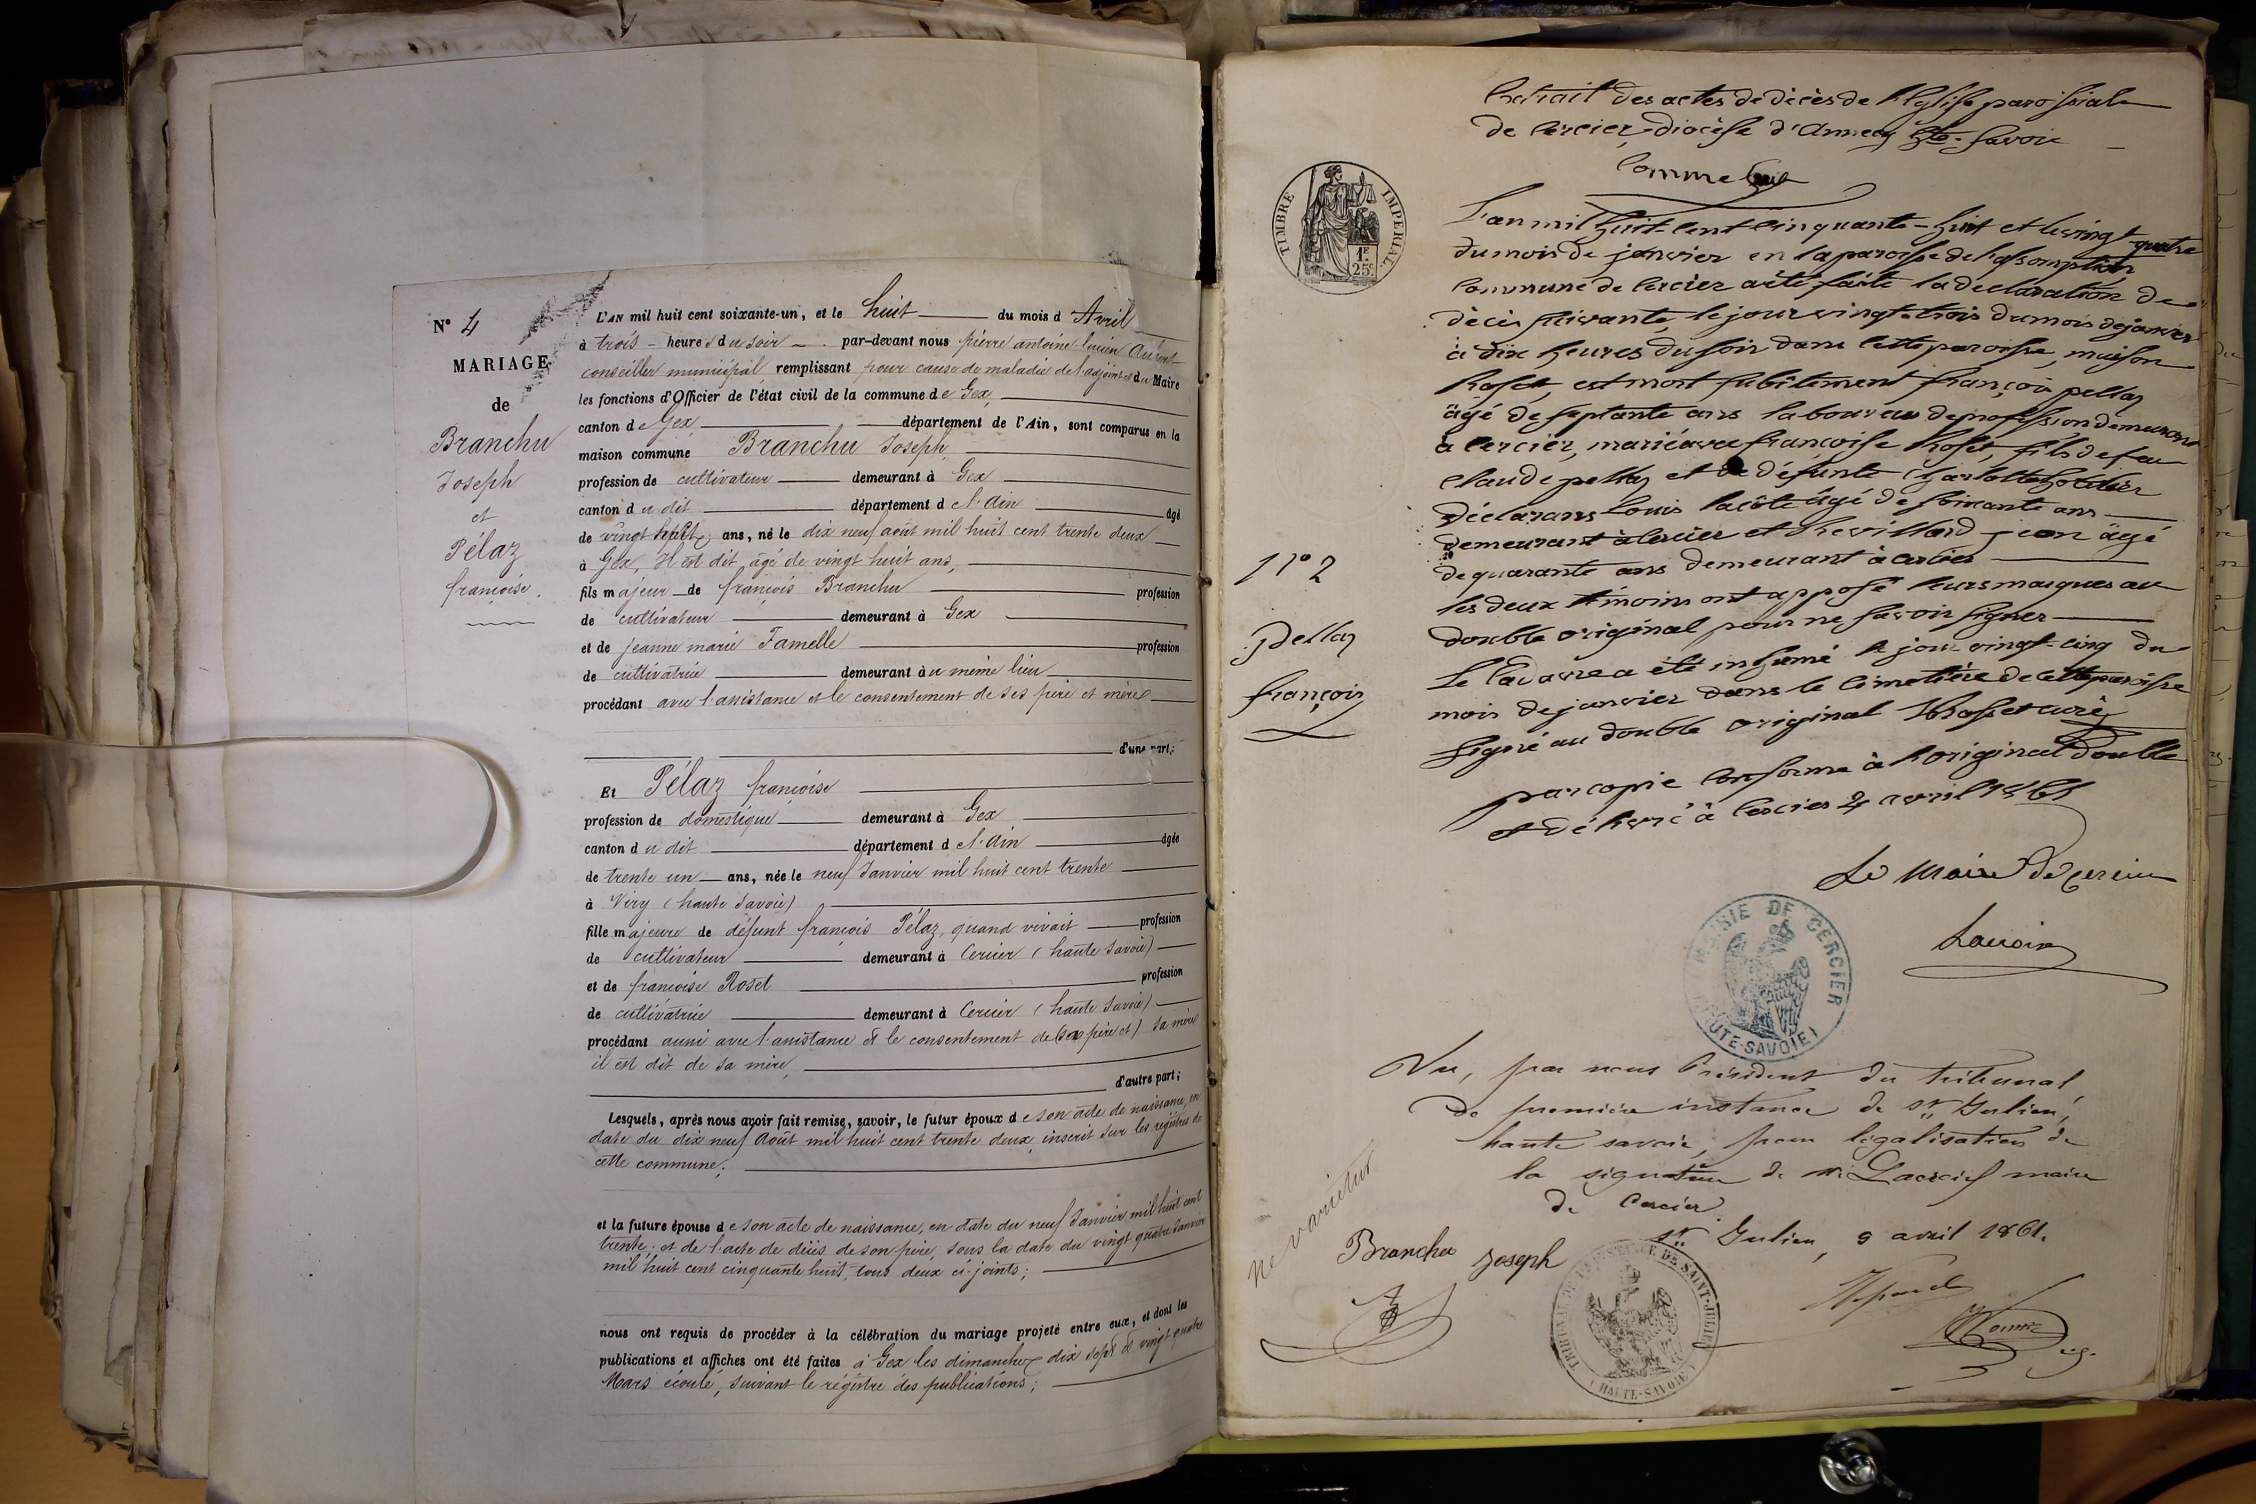 N° 4
MARIAGE
de
Branchu
Joseph
et
Pélaz
françoise.
L'AN mil huit cent soixante-un, et le huit du mois d Avril
à trois heures du soir par-devant nous pierre antoine lucien
conseiller municipal, remplissant pour cause de maladie de l'adjoint et du Maire
les fonctions d'Officier de l'état civil de la commune de Gex,
canton de Gex, département de l'Ain, sont comparus en la
maison commune Branchu Joseph,
profession de cultivateur demeurant à Gex
canton du dit département de l'ain âgé
de vingt huit ans, né le dix neuf août mil huit cent trente deux
à Gex, Il est dit âgé de vingt huit ans,
fils majeur de françois Branchu profession
de cultivateur demeurant à Gex
et de jeanne marie Famelle profession
de cultivatrice demeurant au même lieu
procédant avec l'assistance et le consentement de ses père et mère
d'une part;
Et Pélaz françoise
profession de domestique demeurant à Gex
canton du dit département de l'ain âgée
de trente un ans, née le neuf Janvier mil huit cent trente
à Viry (haute Savoie)
fille majeure de défunt françois Pélaz, quand vivait profession
de cultivateur demeurant à Cercier (haute Savoie)
et de françoise Roset profession
de cultivatrice demeurant à Cercier (haute Savoie)
procédant aussi avec l'assistance & le consentement de (ses père et) sa mère
il est dit de sa mère,
d'autre part;
Lesquels, après nous avoir fait remise, savoir, le futur époux de son acte de naissance, en
date du dix neuf Août mil huit cent trente deux, inscrit sur les régistres de
cette commune;
et la future épouse de son acte de naissance, en date du neuf Janvier mil huit cent
trente; et de l'acte de décès de son père, sous la date du vingt quatre Janvier
mil huit cent cinquante huit, tous deux ci-joints;
nous ont requis de procéder à la célébration du mariage projeté entre eux, et dont les
publications et affiches ont été faites à Gex les dimanches dix sept & vingt quatre
Mars écoulé, suivant le régistre des publications;
Extrait des actes de décès de l'Eglise paroissiale
de Cercier, diocèse d'Annecy Hte-Savoie
Comme Suit
TIMBRE IMPERIAL
1F 25c
L'an mil huit-cent cinquante-huit et le vingt-quatre
du mois de janvier en la paroisse de l'assomption
commune de Cercier a été faite la déclaration de
décès suivante, le jour vingt-trois du mois de janvier
à dix heures du soir dans cette paroisse, maison
Roset, est mort subitement françois pellaz
âgé de septante ans laboureur de profession demeurant
à Cercier, marié avec françoise Roset, fils de feu
Claude pellaz et de défunte Charlotte
Déclarans Louis lacôte âgé de soixante ans
demeurant à Cercier et Chevillard jean âgé
de quarante ans demeurant à Cercier
les deux témoins ont apposé leurs marques au
double original pour ne savoir signer
Le Cadavre a été inhumé le jour vingt-cinq du
mois de janvier dans le Cimetière de cette paroisse
signé au double original Rosset curé
par copie conforme à l'original double
et délivré à Cercier 4 avril 1861
N° 2
Pellaz
françois
Le Maire de Cercier
MAIRIE DE CERCIER
HAUTE-SAVOIE
Vu, par nous Président du tribunal
de première instance de St Julien,
haute savoie, pour légalisation de
la signature de Mr maire
de Cercier.
St Julien, 9 avril 1861.
ne varietur
Branchu Joseph
TRIBUNAL DE 1ère INSTANCE DE SAINT-JULIEN
HAUTE-SAVOIE